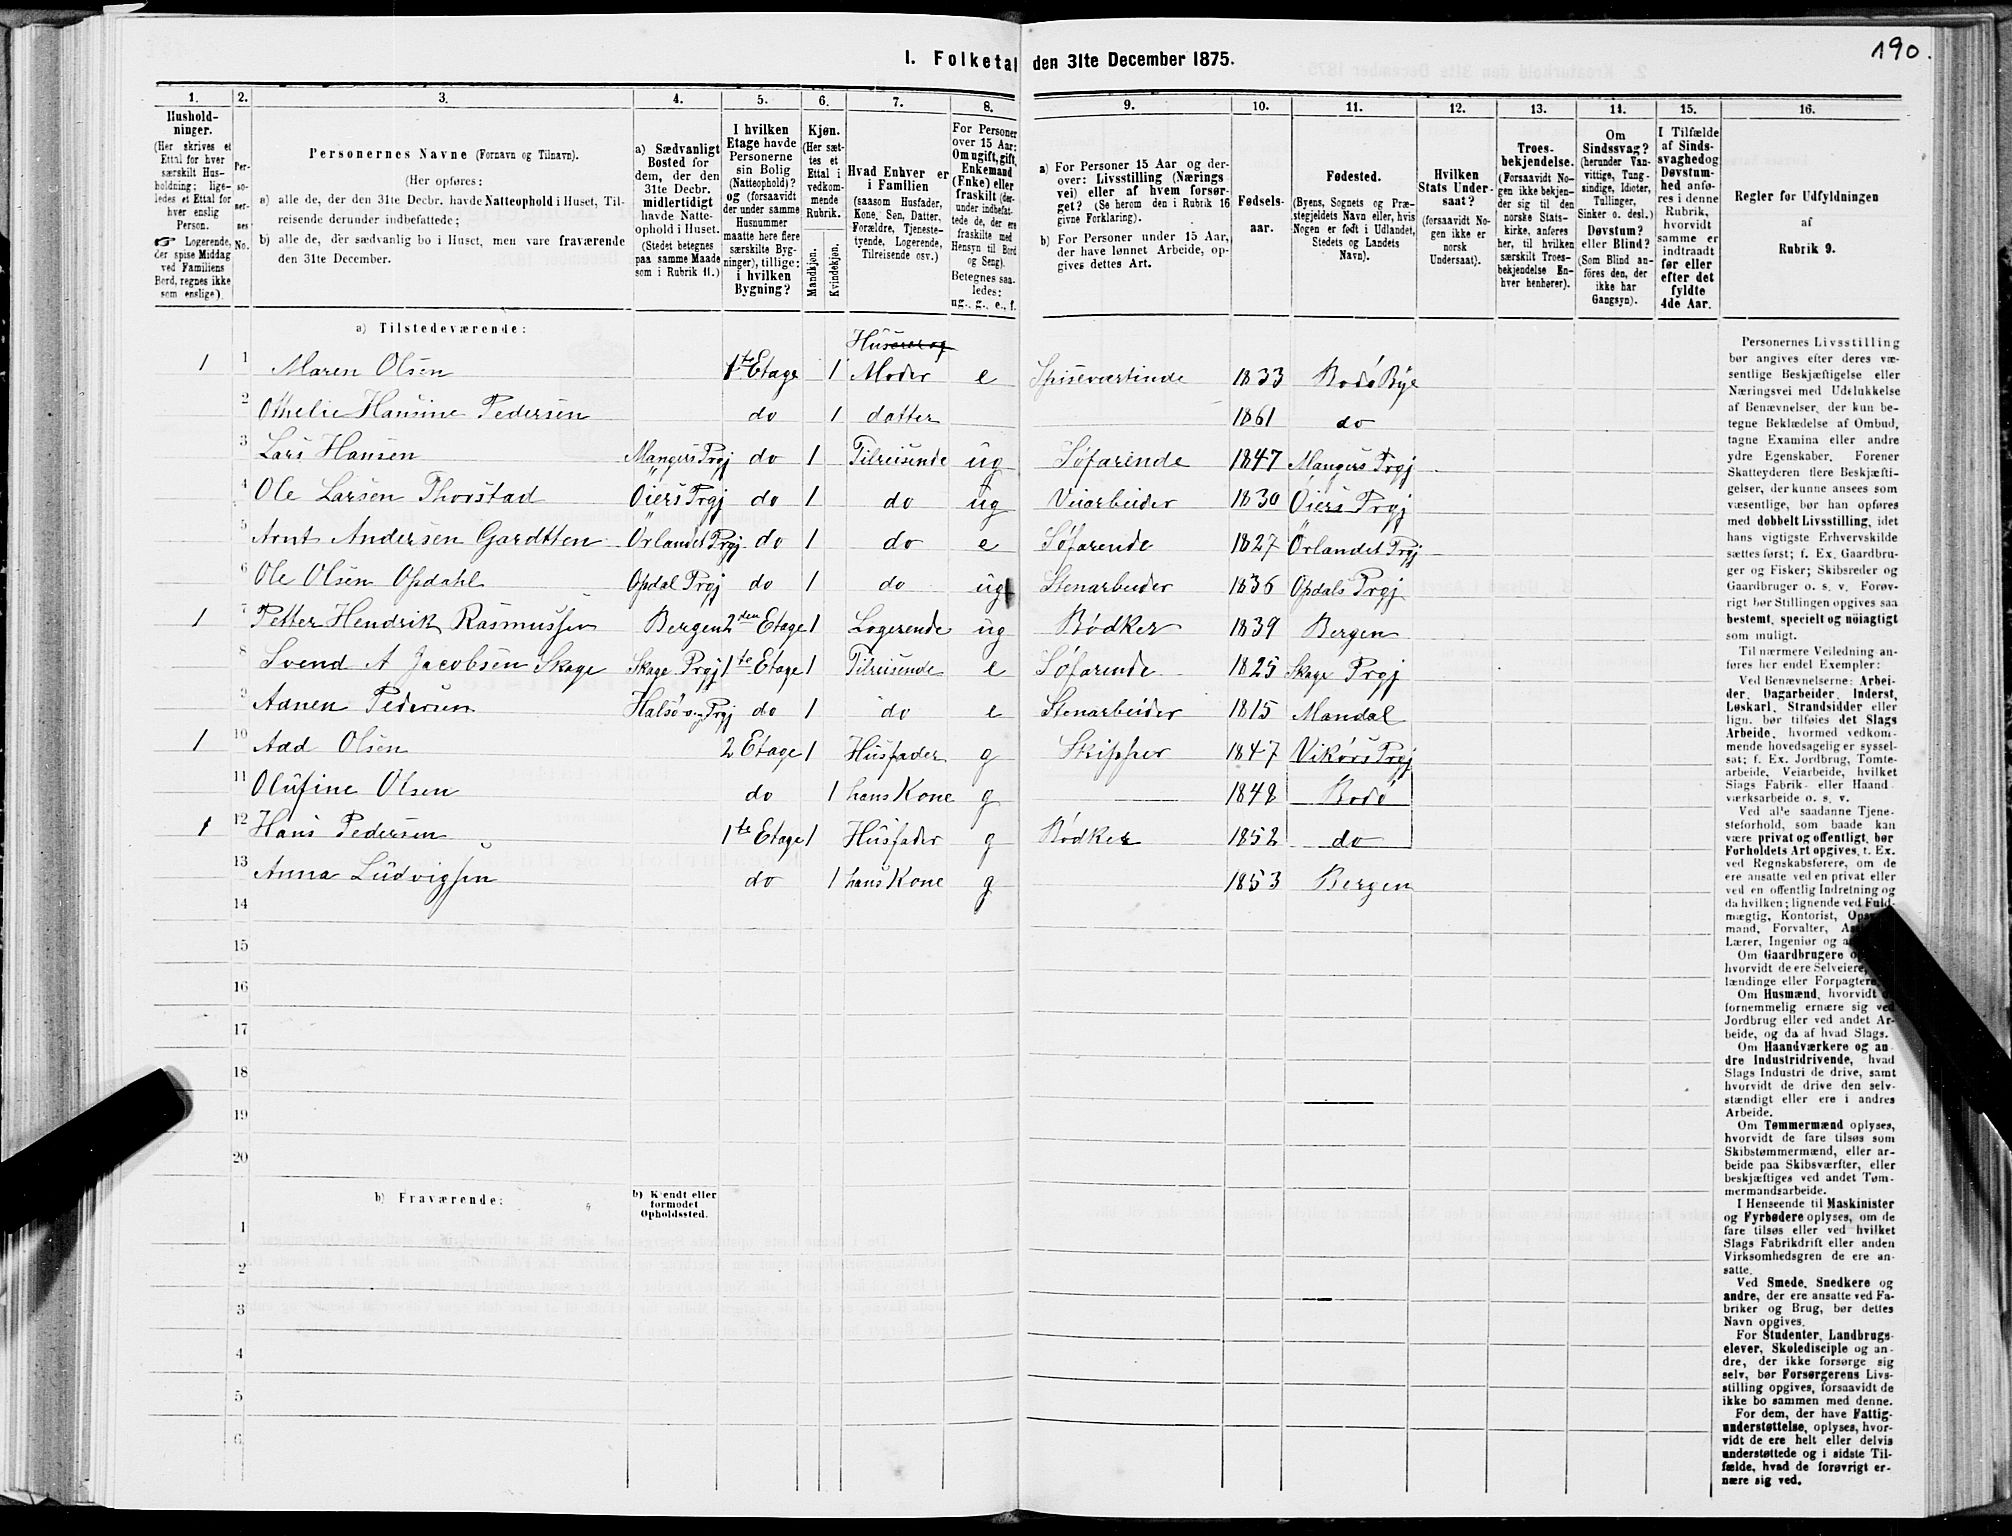 190.
I. Folketal den 31te December 1875.
1. 2. 3. 4. 5. 6. 7. 8. 9. 10. 11. 12. 13. 14. 15. 16.
Hushold-
ninger.
(Her skrives et
Ettal for hver
særskilt Hus-
holdning; lige-
ledes et Ettal for
hver enslig
Person.
☞ Logerende,
der spise Middag
ved Familiens
Bord, regnes ikke
som enslige).
Per-
so-
ner-
nes
No.
Personernes Navne (Fornavn og Tilnavn).
(Her opføres:
a) alle de, der den 31te Decbr. havde Natteophold i Huset, Til-
reisende derunder indbefattede;
b) alle de, der sædvanlig bo i Huset, men vare fraværende
den 31te December.
a) Sædvanligt
Bosted for
dem, der den
31te Decbr.
midlertidigt
havde Natte-
ophold i Huset.
(Stedet betegnes
paa samme Maade
som i Rubrik 11.)
I hvilken
Etage havde
Personerne
sin Bolig
(Natteophold)?
og (forsaavidt
der under samme
Husnummer
maatte høre flere
særskilte Byg-
ninger), tillige:
i hvilken
Bygning?
Kjøn.
(Her sæt-
tes et
Ettal i
vedkom-
mende
Rubrik.
Mandkjøn.
Kvindekjøn.
Hvad Enhver er
i Familien
(saasom Husfader,
Kone, Søn, Datter,
Forældre, Tjeneste-
tyende, Logerende,
Tilreisende osv.)
For Personer
over 15 Aar:
Om ugift, gift,
Enkemand
(Enke) eller
fraskilt (der-
under indbefat-
tede de, der ere
fraskilte med
Hensyn til Bord
og Seng).
Betegnes saa-
ledes:
ug., g., e., f.
a) For Personer 15 Aar og der-
over: Livsstilling (Nærings-
vei) eller af hvem forsør-
get? (Se herom den i Rubrik 16
givne Forklaring).
b) For Personer under 15 Aar,
der have lønnet Arbeide, op-
gives dettes Art.
Fødsels-
aar.
Fødested.
(Byens, Sognets og Præ-
stegjeldets Navn eller, hvis
Nogen er født i Udlandet,
Stedets og Landets
Navn).
Hvilken
Stats Under-
saat?
(forsaavidt No-
gen ikke er
norsk
Undersaat).
Troes-
bekjendelse.
(Forsaavidt No-
gen ikke bekjen-
der sig til den
norske Stats-
kirke, anføres
her, til hvilken
særskilt Troes-
bekjendelse En-
hver henhører).
Om
Sindssvag?
(herunder Van-
vittige, Tung-
sindige, Idioter,
Tullinger,
Sinker o. desl.)
Døvstum?
eller Blind?
(Som Blind an-
føres den, der
ikke har
Gangsyn).
I Tilfælde
af Sinds-
svaghed og
Døvstum-
hed anfø-
res i denne
Rubrik,
hvorvidt
samme er
indtraadt
før eller
efter det
fyldte
4de Aar.
Regler for Udfyldningen
af
Rubrik 9.
a) Tilstedeværende:
1 1 Maren Olsen 1te Etage 1 Moder e Spiseværtinde 1833 Bodø Bye
2 Othelie Hansine Pedersen do 1 datter 1861 do
3 Lars Hansen Mangers Prgj do 1 Tilreisende ug Søfarende 1847 Mangers Prgj
4 Ole Larsen Thorstad Öiers Prgj do 1 do ug Veiarbeider 1830 Öiers Prgj
5 Arnt Andersen Gardtten Örlandet Prgj do 1 do e Søfarende 1827 Örlandet Prgj
6 Ole Olsen Opdahl Opdal Prgj do 1 do ug Stenarbeider 1836 Opdals Prgj
1 7 Petter Hendrik Rasmussen Bergen 2den Etage 1 Logerende ug Bødker 1839 Bergen
8 Svend A Jacobsen Skage Skage Prgj 1te Etage 1 Tilreisende e Søfarende 1825 Skage Prgj
9 Aanen Pedersen Prgj do 1 do e Stenarbeider 1815 Mandal
1 10 Aad Olsen 2 Etage 1 Husfader g Skipper 1847 Vikørs Prgj
11 Olufine Olsen do 1 hans Kone g 1848 Bodø
1 12 Hans Pedersen 1te Etage 1 Husfader g Bødker 1852 do
13 Anna Ludvigsen do 1 hans Kone g 1853 Bergen
14
15
16
17
18
19
20
b) Fraværende:
b) Kjendt eller
formodet
Opholdssted.
1
2
3
4
5
6
Personernes Livsstilling
bør angives efter deres væ-
sentlige Beskjæftigelse eller
Næringsvei med Udelukkelse
af Benævnelser, der kun be-
tegne Beklædelse af Ombud,
tagne Examina eller andre
ydre Egenskaber. Forener
Skatteyderen flere Beskjæfti-
gelser, der kunne ansees som
væsentlige, bør han opføres
med dobbelt Livsstilling, idet
hans vigtigste Erhvervskilde
sættes først; f. Ex. Gaardbru-
ger og Fisker; Skibsreder og
Gaardbruger o. s. v. Forøv-
rigt bør Stillingen opgives saa
bestemt, specielt og nøiagtigt
som muligt.
Til nærmere Veiledning an-
føres her endel Exempler:
Ved Benævnelserne: Arbei-
der, Dagarbeider, Inderst,
Løskarl, Strandsidder eller
lign. bør tilføies det Slags
Arbeide, hvormed vedkom-
mende hovedsagelig er syssel-
sat; f. Ex. Jordbrug, Tomte-
arbeide, Veiarbeide, hvilket
Slags Fabrik- eller Haand-
værksarbeide o. s. v.
Ved alle saadanne Tjene-
steforhold, som baade kan
være privat og offentligt, bør
Forholdets Art opgives, t. Ex.
ved Regnskabsførere, om de
ere ansatte ved en privat eller
ved en offentlig Indretning og
da hvilken; lignende ved Fuld-
mægtig, Kontorist,
mand, Forvalter,
Lærer, Ingeniør og
Om Gaardbrugere
hvorvidt de ere Selveiere,
lændinge eller Forpagtere.
Om Husmænd, hvorvidt
fornemmelig ernære sig ved
Jordbrug eller ved andet Ar-
beide, og da af hvad Slags.
Om Haandværkere og an-
dre Industridrivende, hvad
Slags Industri de drive, samt
hvorvidt de drive den selv-
stændigt eller ere i andres
Arbeide.
Om Tømmermænd oplyses,
hvorvidt de fare tilsøs som
Skibstømmermænd, eller ar-
beide paa Skibsværfter, eller
beskjæftiges ved andet Tøm-
mermandsarbeide.
I Henseende til Maskinister
og Fyrbødere oplyses, om de
fare tilsøs eller ved hvilket
Slags Fabrikdrift eller anden
Virksomhedsgren de ere an-
satte.
Ved Smede, Snedkere og
andre, der ere ansatte ved Fa-
briker og Brug, bør dettes
Navn opgives.
For Studenter, Landbrugs-
elever, Skoledisciple og an-
dre, der ikke forsørge sig
selv, bør Forsørgerens Livs-
stilling opgives, forsaavidt de
ikke bo sammen med denne.
For dem, der have Fattig-
understøttelse, oplyses, hvor-
vidt de ere helt eller delvis
understøttede og i sidste Til-
fælde, hvad de forøvrigt er-
nære sig ved.